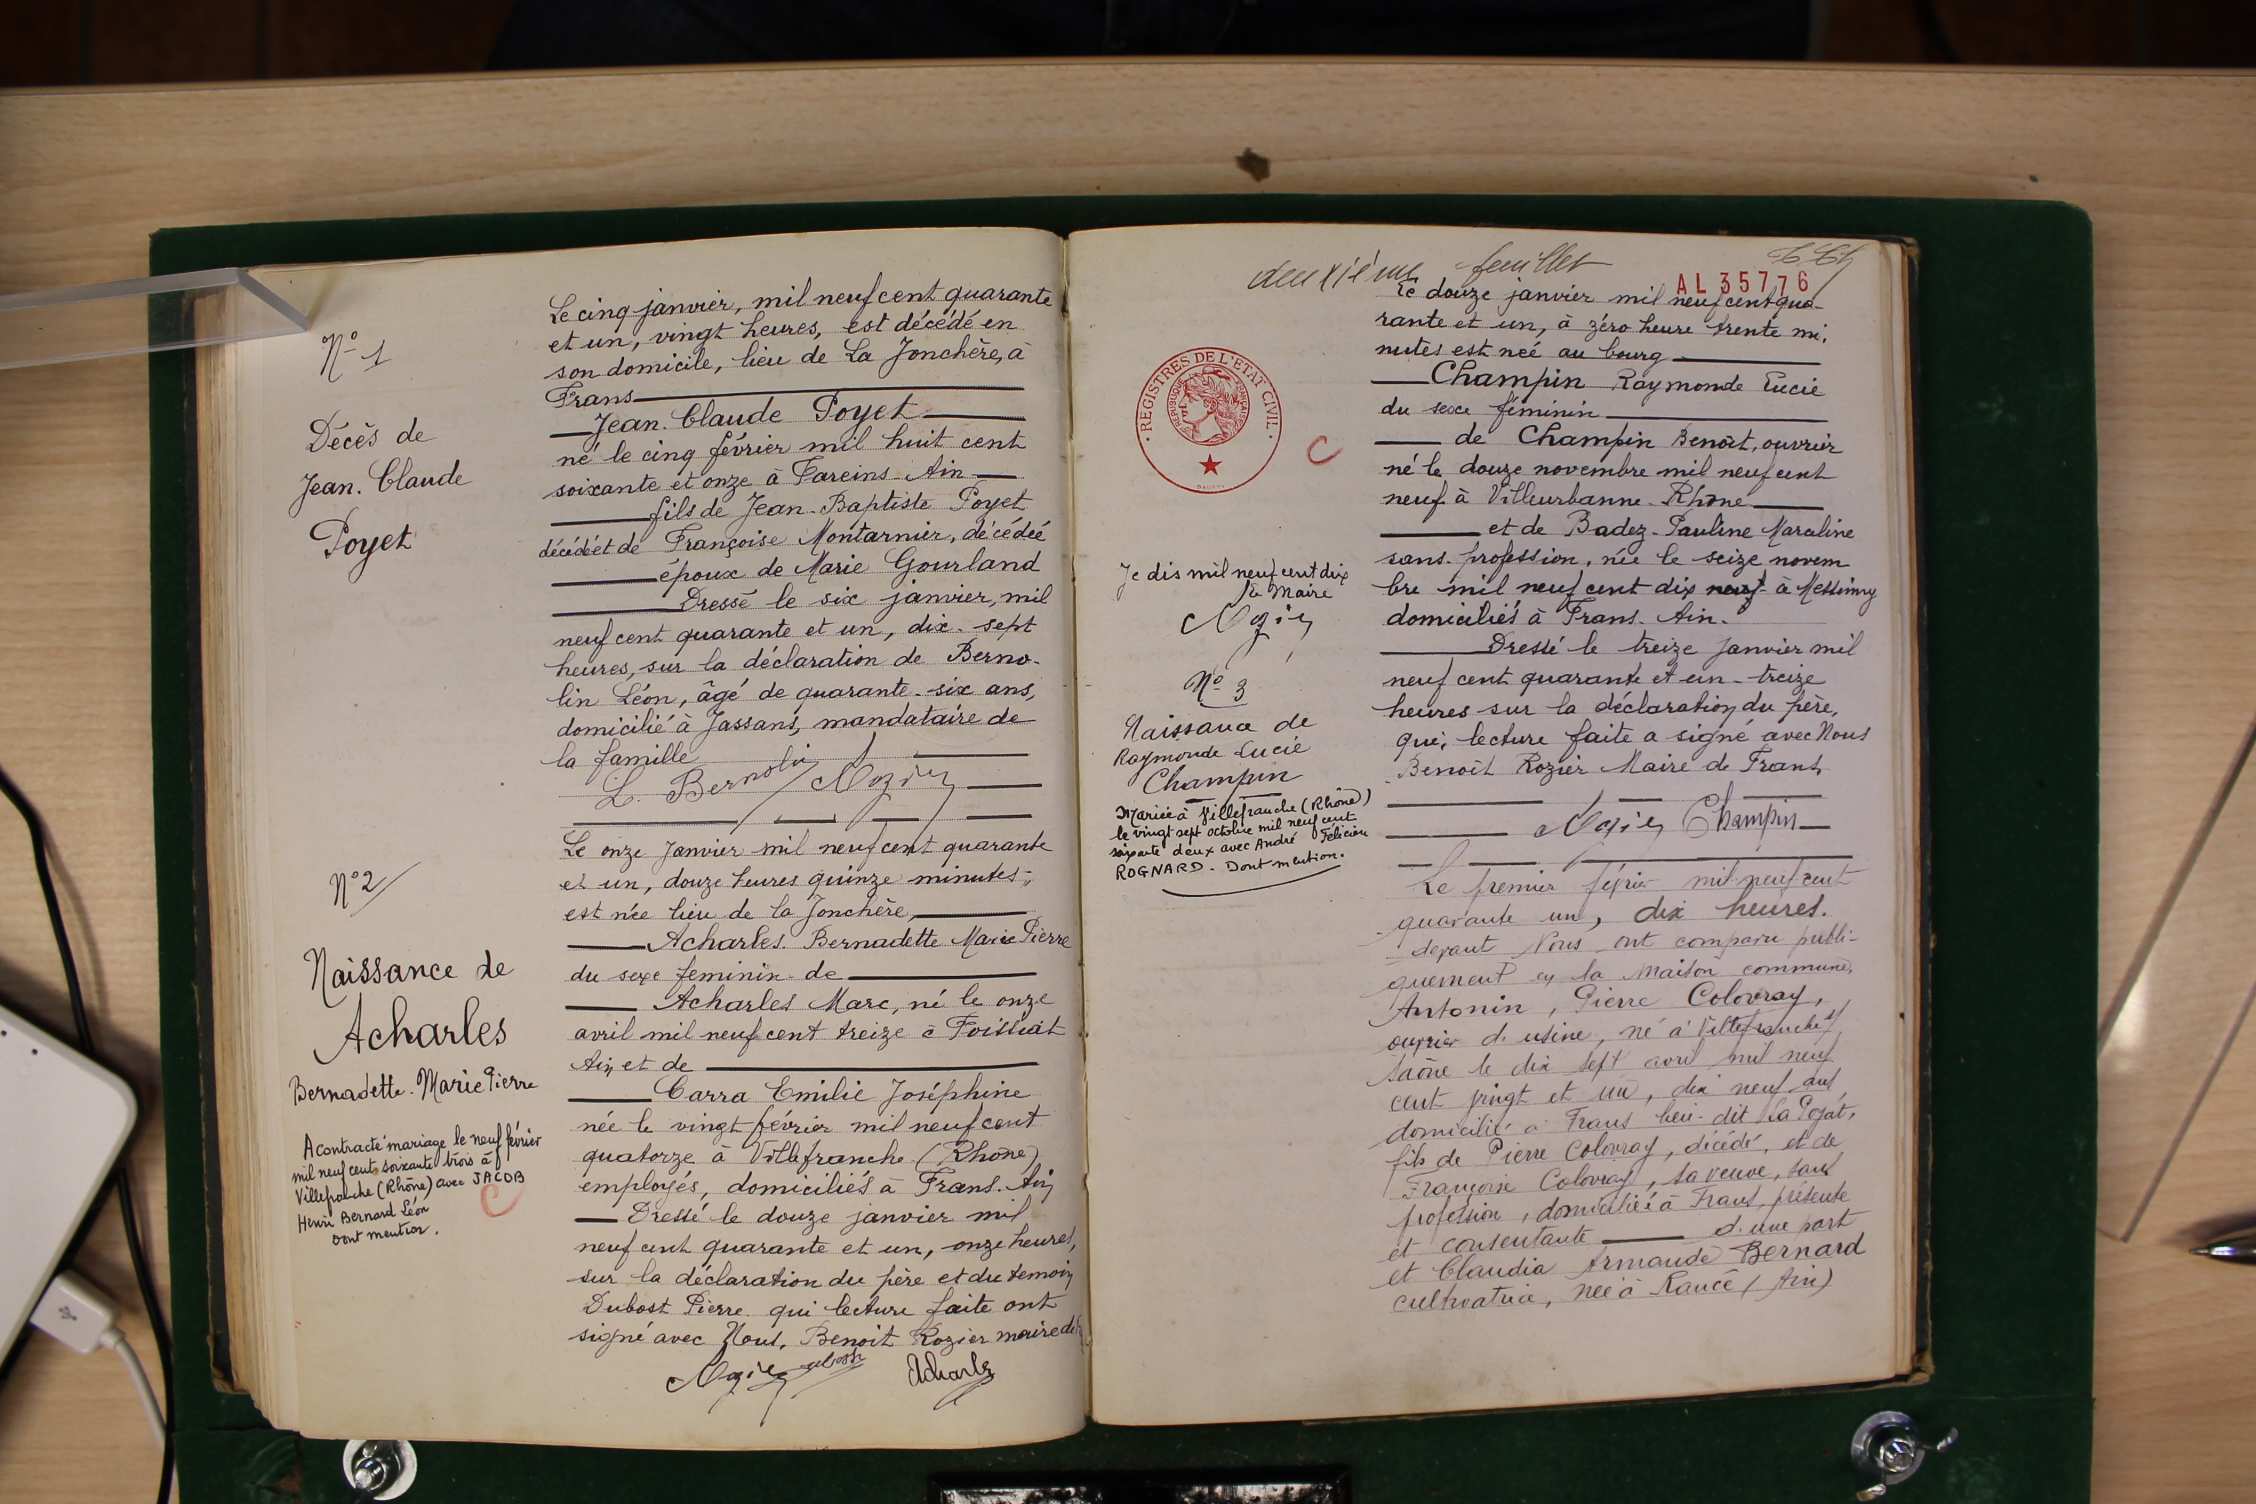 N° 1
Décès de
Jean. Claude
Poyet
Le cinq janvier, mil neuf cent quarante
et un, vingt heures, est décédé en
son domicile, lieu de La Jonchère, à
Frans
Jean. Claude Poyet
né le cinq février mil huit cent
soixante et onze à Fareins. Ain
fils de Jean-Baptiste Poyet
décédé et de Françoise Montarnier, décédée
époux de Marie Gourland
Dressé le six janvier, mil
neuf cent quarante et un, dix-sept
heures, sur la déclaration de Berno-
lin Léon, âgé de quarante-six ans,
domicilié à Jassans, mandataire de
la famille
L. Bernolin Rozier
N° 2
Naissance de
Acharles
Bernadette. Marie Pierre
A contracté mariage le neuf février
mil neuf cent soixante trois à
Villefranche (Rhône) avec JACOB
Henri Bernard Léon
Dont mention.
Le onze janvier mil neuf cent quarante
et un, douze heures quinze minutes,
est née lieu de la Jonchère,
Acharles. Bernadette Marie Pierre
du sexe feminin de
Acharles Marc, né le onze
avril mil neuf cent treize à Foissiat
Ain et de
Carra Emilie Joséphine
née le vingt février mil neuf cent
quatorze à Villefranche (Rhône)
employés, domiciliés à Frans. Ain
Dressé le douze janvier mil
neuf cent quarante et un, onze heures,
sur la déclaration du père et du temoin
Dubost Pierre qui lecture faite ont
signé avec Nous, Benoit Rozier maire de
Rozier Dubost Acharles
deuxième feuillet
AL 35776
REGISTRES DE L'ETAT CIVIL
REPUBLIQUE FRANÇAISE
C
Je dis mil neuf cent dix
Le Maire
Rozier
N° 3
Naissance de
Raymonde Lucie
Champin
Mariée à Villefranche (Rhône)
le vingt sept octobre mil neuf cent
soixante deux avec André Félicien
ROGNARD. Dont mention.
Le douze janvier mil neuf cent qua-
rante et un, à zéro heure trente mi.
nutes est neé au bourg
Champin Raymonde Lucie
du sexe féminin
de Champin Benoit, ouvrier
né le douze novembre mil neuf cent
neuf à Villeurbanne. Rhône
et de Badez. Pauline Marceline
sans. profession, née le seize novem
bre mil neuf cent dix neuf à Messimy
domiciliés à Frans. Ain.
Dressé le treize janvier mil
neuf cent quarante et un treize
heures sur la déclaration du père,
qui, lecture faite a signé avec Nous
Benoit Rozier Maire de Frans
Rozier Champin
Le premier février mil neuf cent
quarante un, dix heures.
devant Nous ont comparu publi-
quement en la Maison commune,
Antonin, Pierre Colovray,
ouvrier d'usine, né à Villefranche s/
Saône le dix sept avril mil neuf
cent vingt et un, dix neuf ans
domicilié à Frans lieu-dit La Poyat,
fils de Pierre Colovray, décédé, et de
Françoise Colovray, sa veuve, sans
profession, domiciliée à Frans, présente
et consentante d'une part
et Claudia Armande BERNARD
cultivatrice, née à Rancé (Ain)